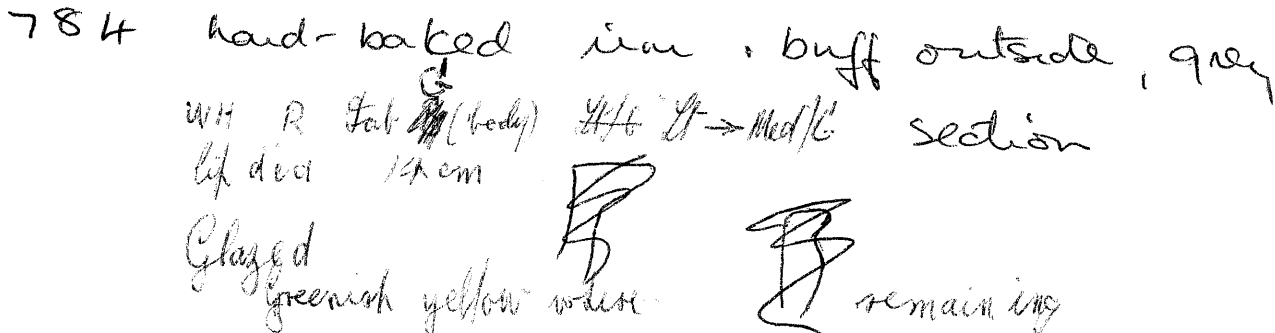 784 hard-baked rim. buff outside, grey section
G
WH R Fab (body) Lt → Med/C
lip dia cm
Glazed
Greenish yellow where remaining